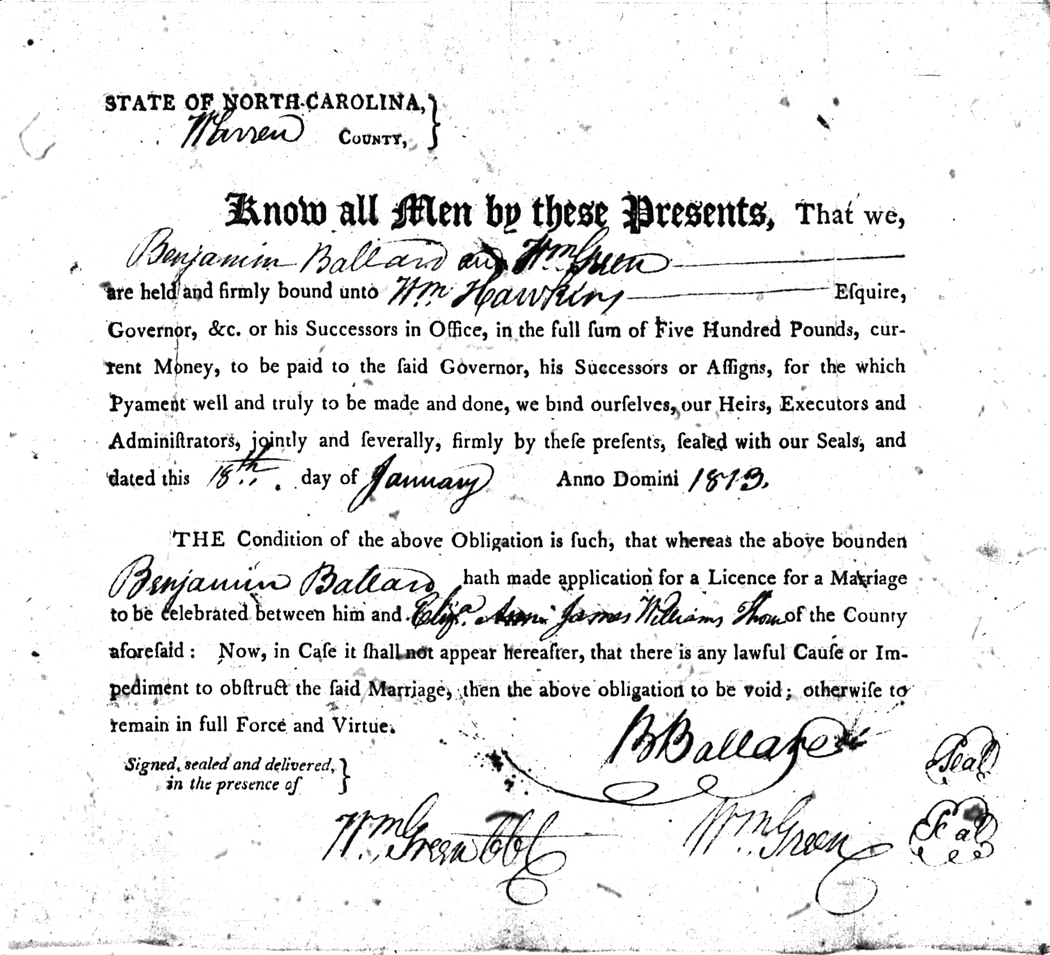 STATE OF NORTH-CAROLINA, }
Warren COUNTY,
Know all Men by these Presents, That we,
Benjamin Ballard and Wm. Green
are held and firmly bound unto Wm Hawkins Eſquire,
Governor, &c. or his Succeſſors in Office, in the full ſum of Five Hundred Pounds, cur-
rent Money, to be paid to the ſaid Governor, his Succeſſors or Aſſigns, for the which
Pyament well and truly to be made and done, we bind ourſelves, our Heirs, Executors and
Adminiſtrators, jointly and ſeverally, firmly by theſe preſents, ſealed with our Seals, and
dated this 18th. day of January Anno Domini 1813.
THE Condition of the above Obligation is ſuch, that whereas the above bounden
Benjamin Ballard hath made application for a Licence for a Marriage
to be celebrated between him and Eliza. James Williams Thom of the County
aforeſaid: Now, in Caſe it ſhall not appear hereafter, that there is any lawful Cauſe or Im-
pediment to obſtruct the ſaid Marriage, then the above obligation to be void; otherwiſe to
remain in full Force and Virtue.
B Ballard Seal
Signed, sealed and delivered, }
in the presence of
Wm. Green Wm. Green Seal